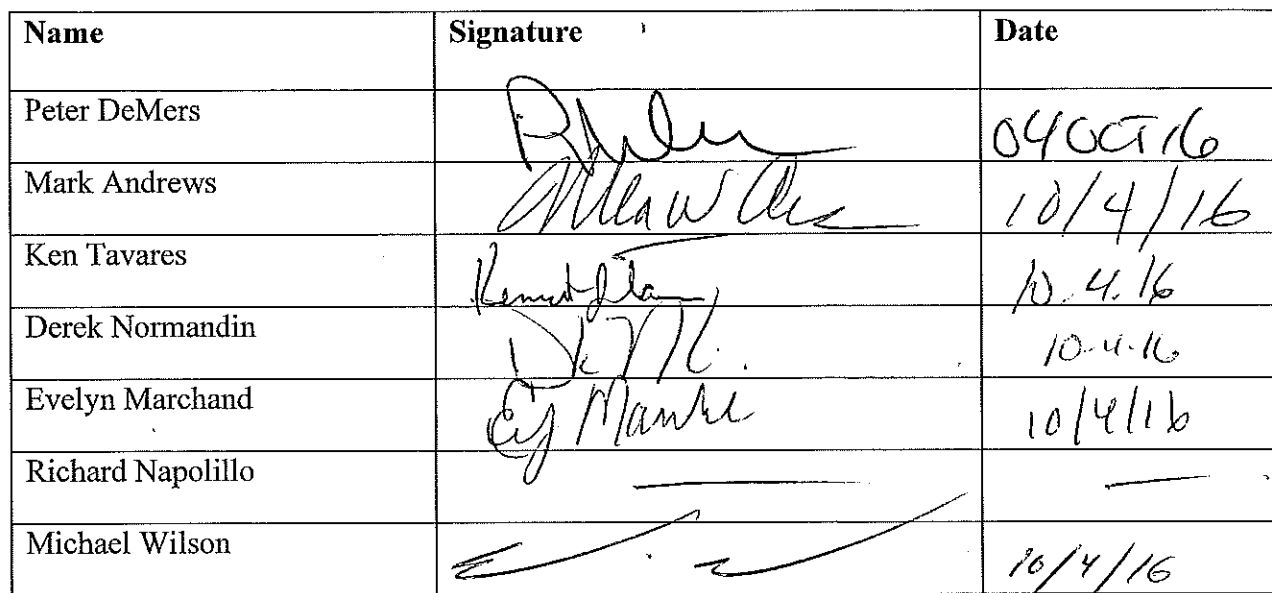 Name Signature Date
Peter DeMers 04OCT16
Mark Andrews 10/4/16
Ken Tavares 10.4.16
Derek Normandin 10.4.16
Evelyn Marchand 10/4/16
Richard Napolillo — —
Michael Wilson 10/4/16